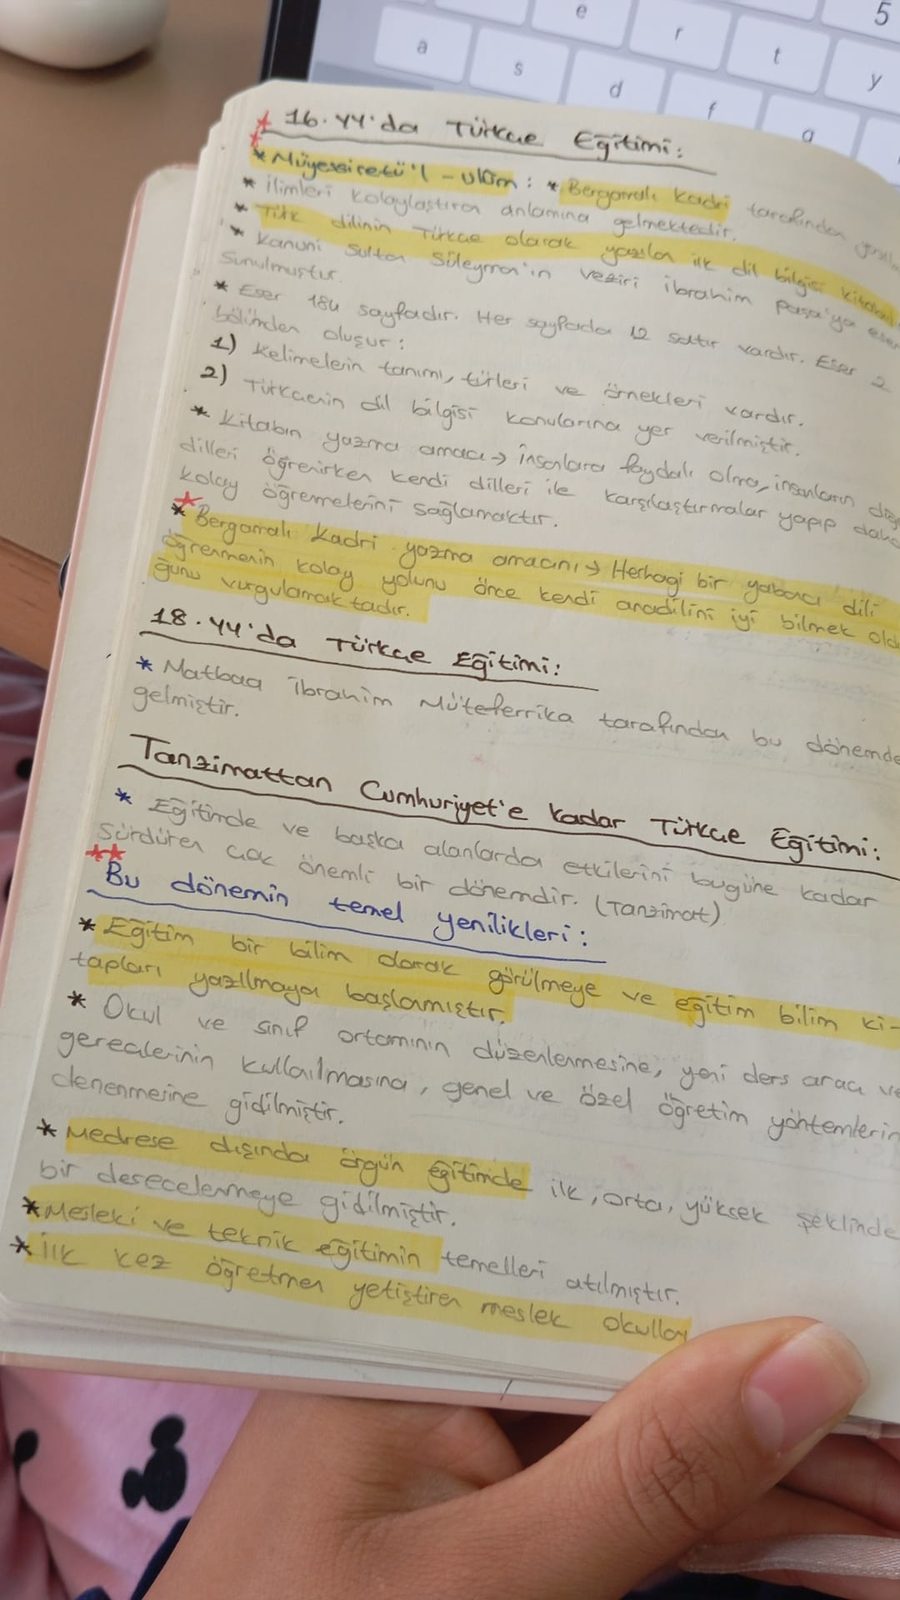 5
e r t y
a s d f g
16. yy'da Türkçe Eğitimi:
* Müyessiretü'l - ulûm: * Bergamalı Kadri tarafından
* İlimleri kolaylaştıran anlamına gelmektedir.
* Türk dilinin Türkçe olarak yazılan ilk dil bilgisi
* Kanuni Sultan Süleyman'ın veziri İbrahim Paşa'ya eser
sunulmuştur.
* Eser 184 sayfadır. Her sayfada 12 satır vardır. Eser 2
bölümden oluşur:
1) Kelimelerin tanımı, türleri ve örnekleri vardır.
2) Türkçenin dil bilgisi konularına yer verilmiştir.
* Kitabın yazma amacı → İnsanlara faydalı olma, insanların
dilleri öğrenirken kendi dilleri ile karşılaştırmalar yapıp daha
kolay öğremelerini sağlamaktır.
* Bergamalı Kadri yazma amacını → Herhagi bir yabancı dili
öğrenmenin kolay yolunu önce kendi anadilini iyi bilmek oldu
ğunu vurgulamaktadır.
18. yy'da Türkçe Eğitimi:
* Matbaa İbrahim Müteferrika tarafından bu dönemde
gelmiştir.
Tanzimattan Cumhuriyet'e Kadar Türkçe Eğitimi:
* Eğitimde ve başka alanlarda etkilerini bugüne kadar
sürdüren çok önemli bir dönemdir. (Tanzimat)
Bu dönemin temel yenilikleri:
* Eğitim bir bilim olarak görülmeye ve eğitim bilim ki-
tapları yazılmaya başlanmıştır.
* Okul ve sınıf ortamının düzenlenmesine, yeni ders aracı ve
gereçlerinin kullanılmasına, genel ve özel öğretim yöntemlerin
denenmesine gidilmiştir.
* Medrese dışında örgün eğitimde ilk, orta, yüksek şeklinde
bir derecelenmeye gidilmiştir.
* Mesleki ve teknik eğitimin temelleri atılmıştır.
* İlk kez öğretmen yetiştiren meslek okulları